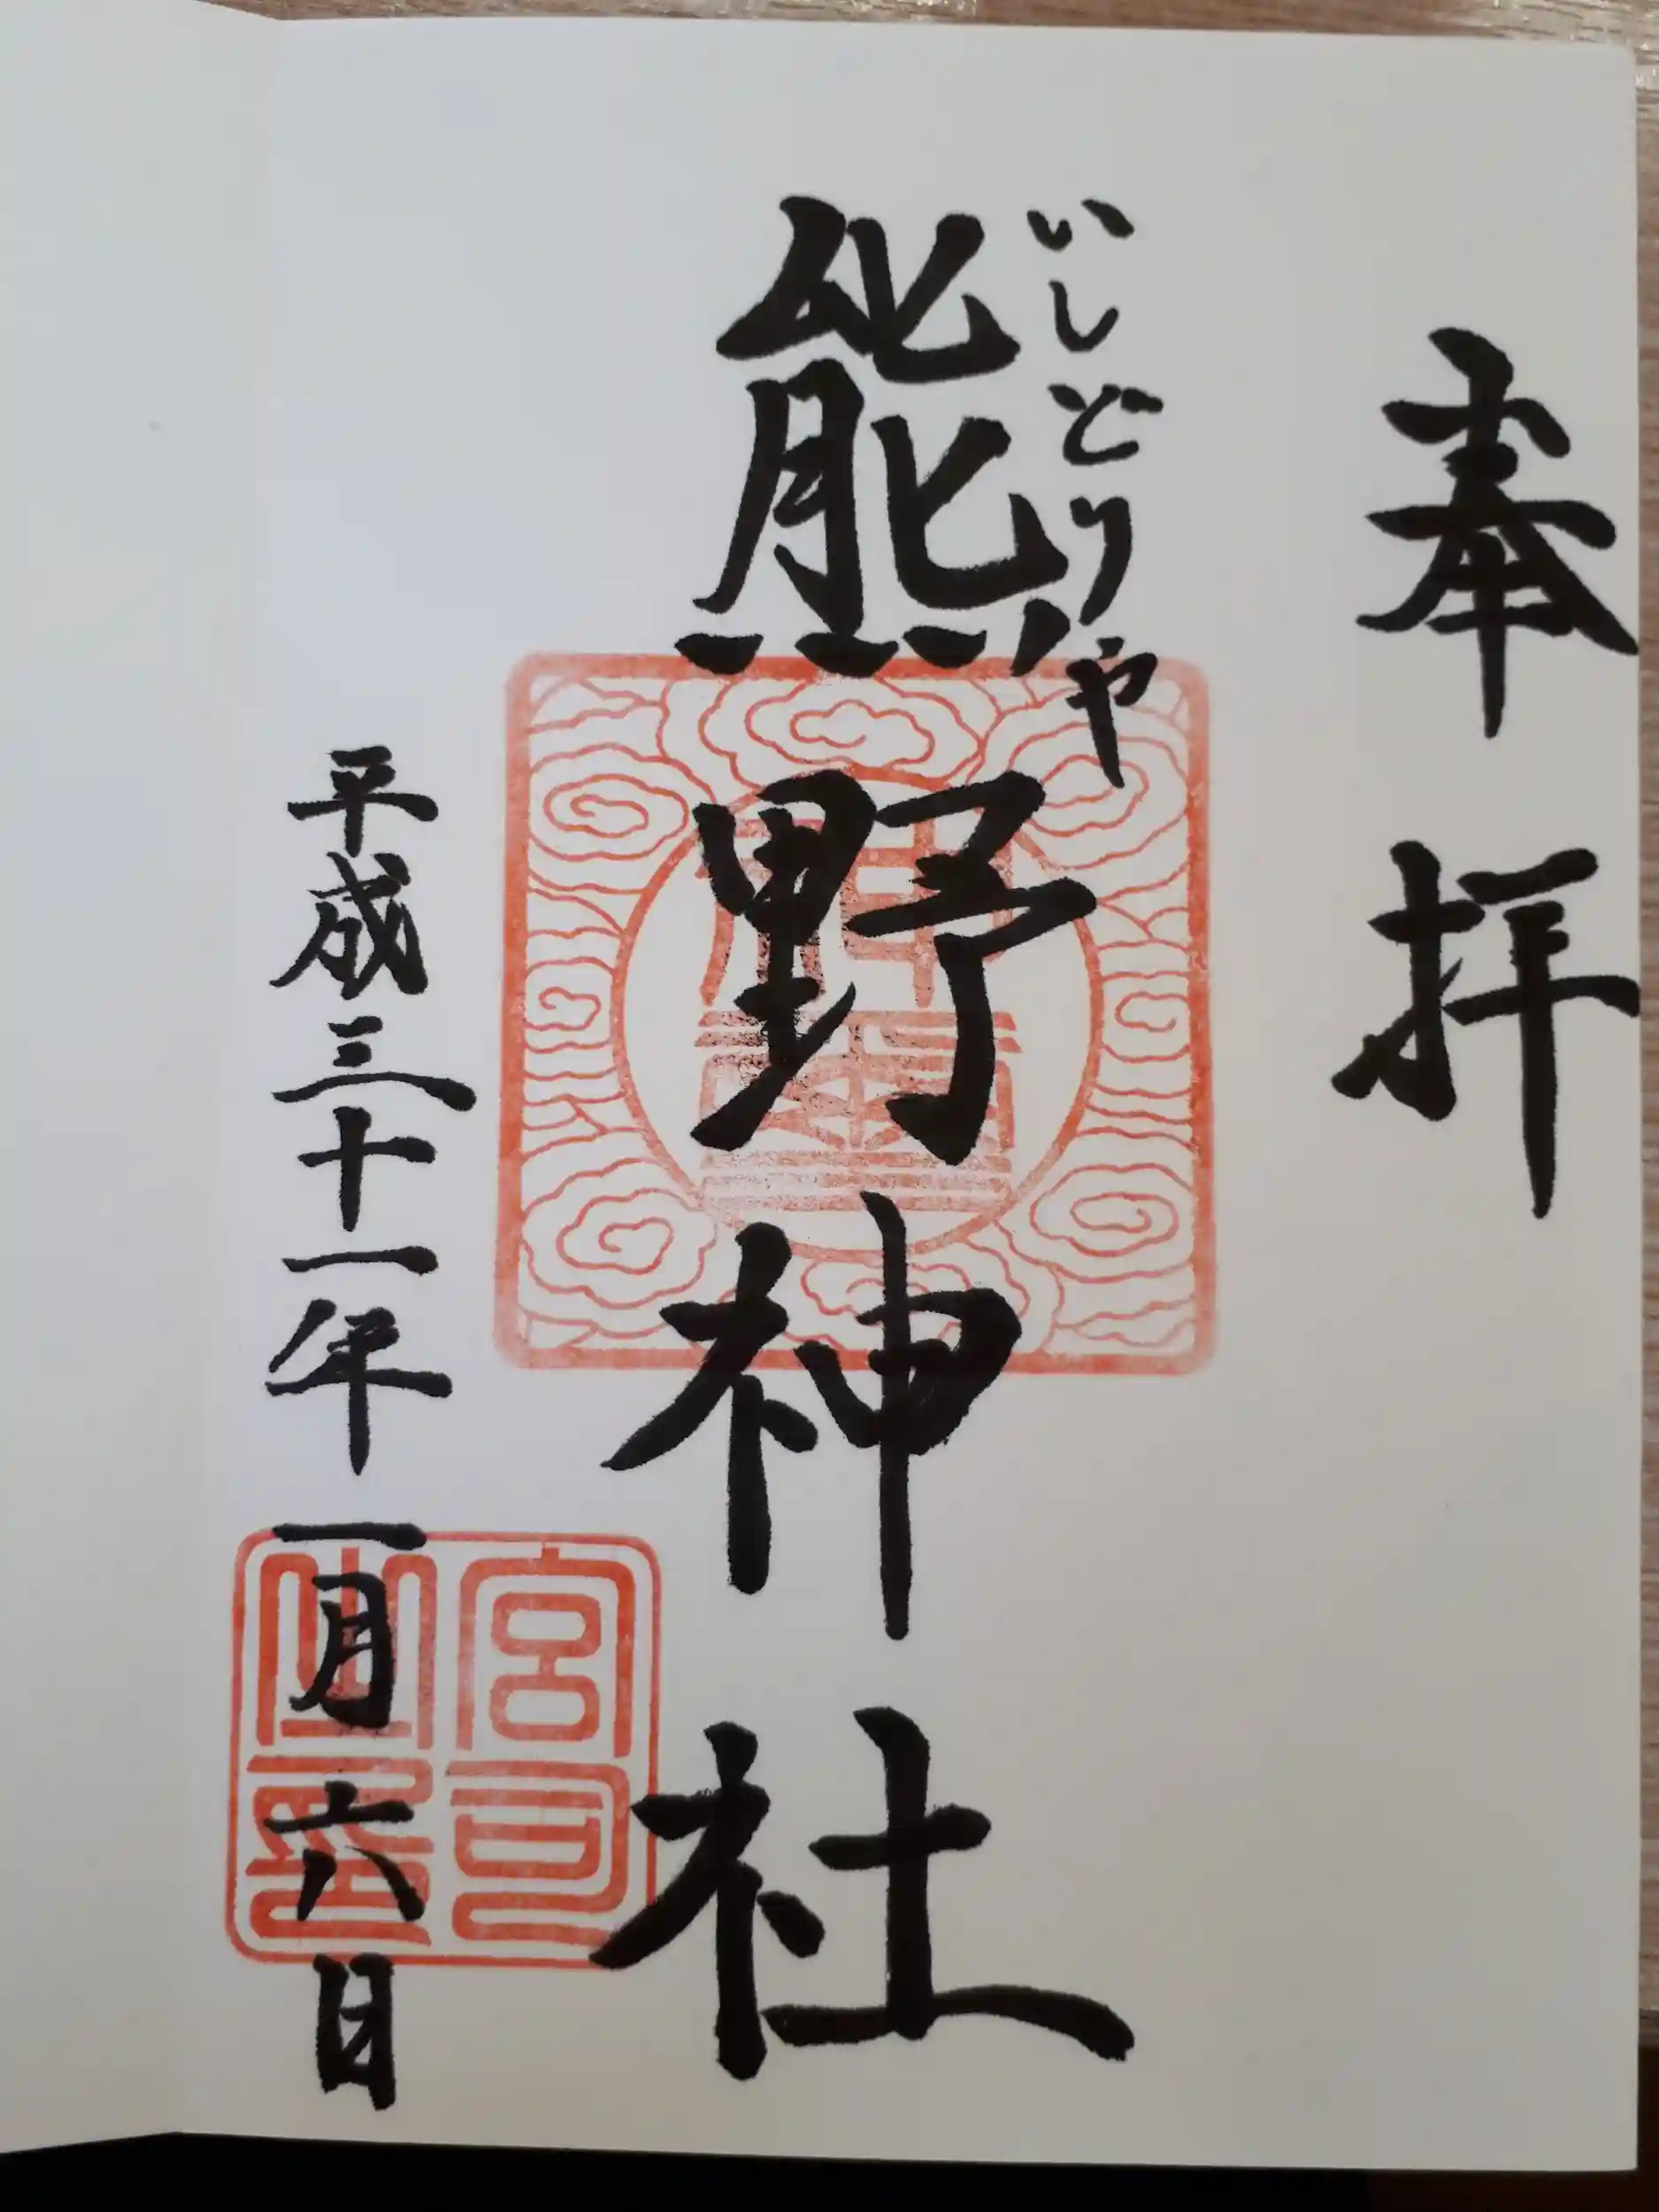 奉拝
いしどりや
熊野神社
平成三十一年一月六日
宮司
之印